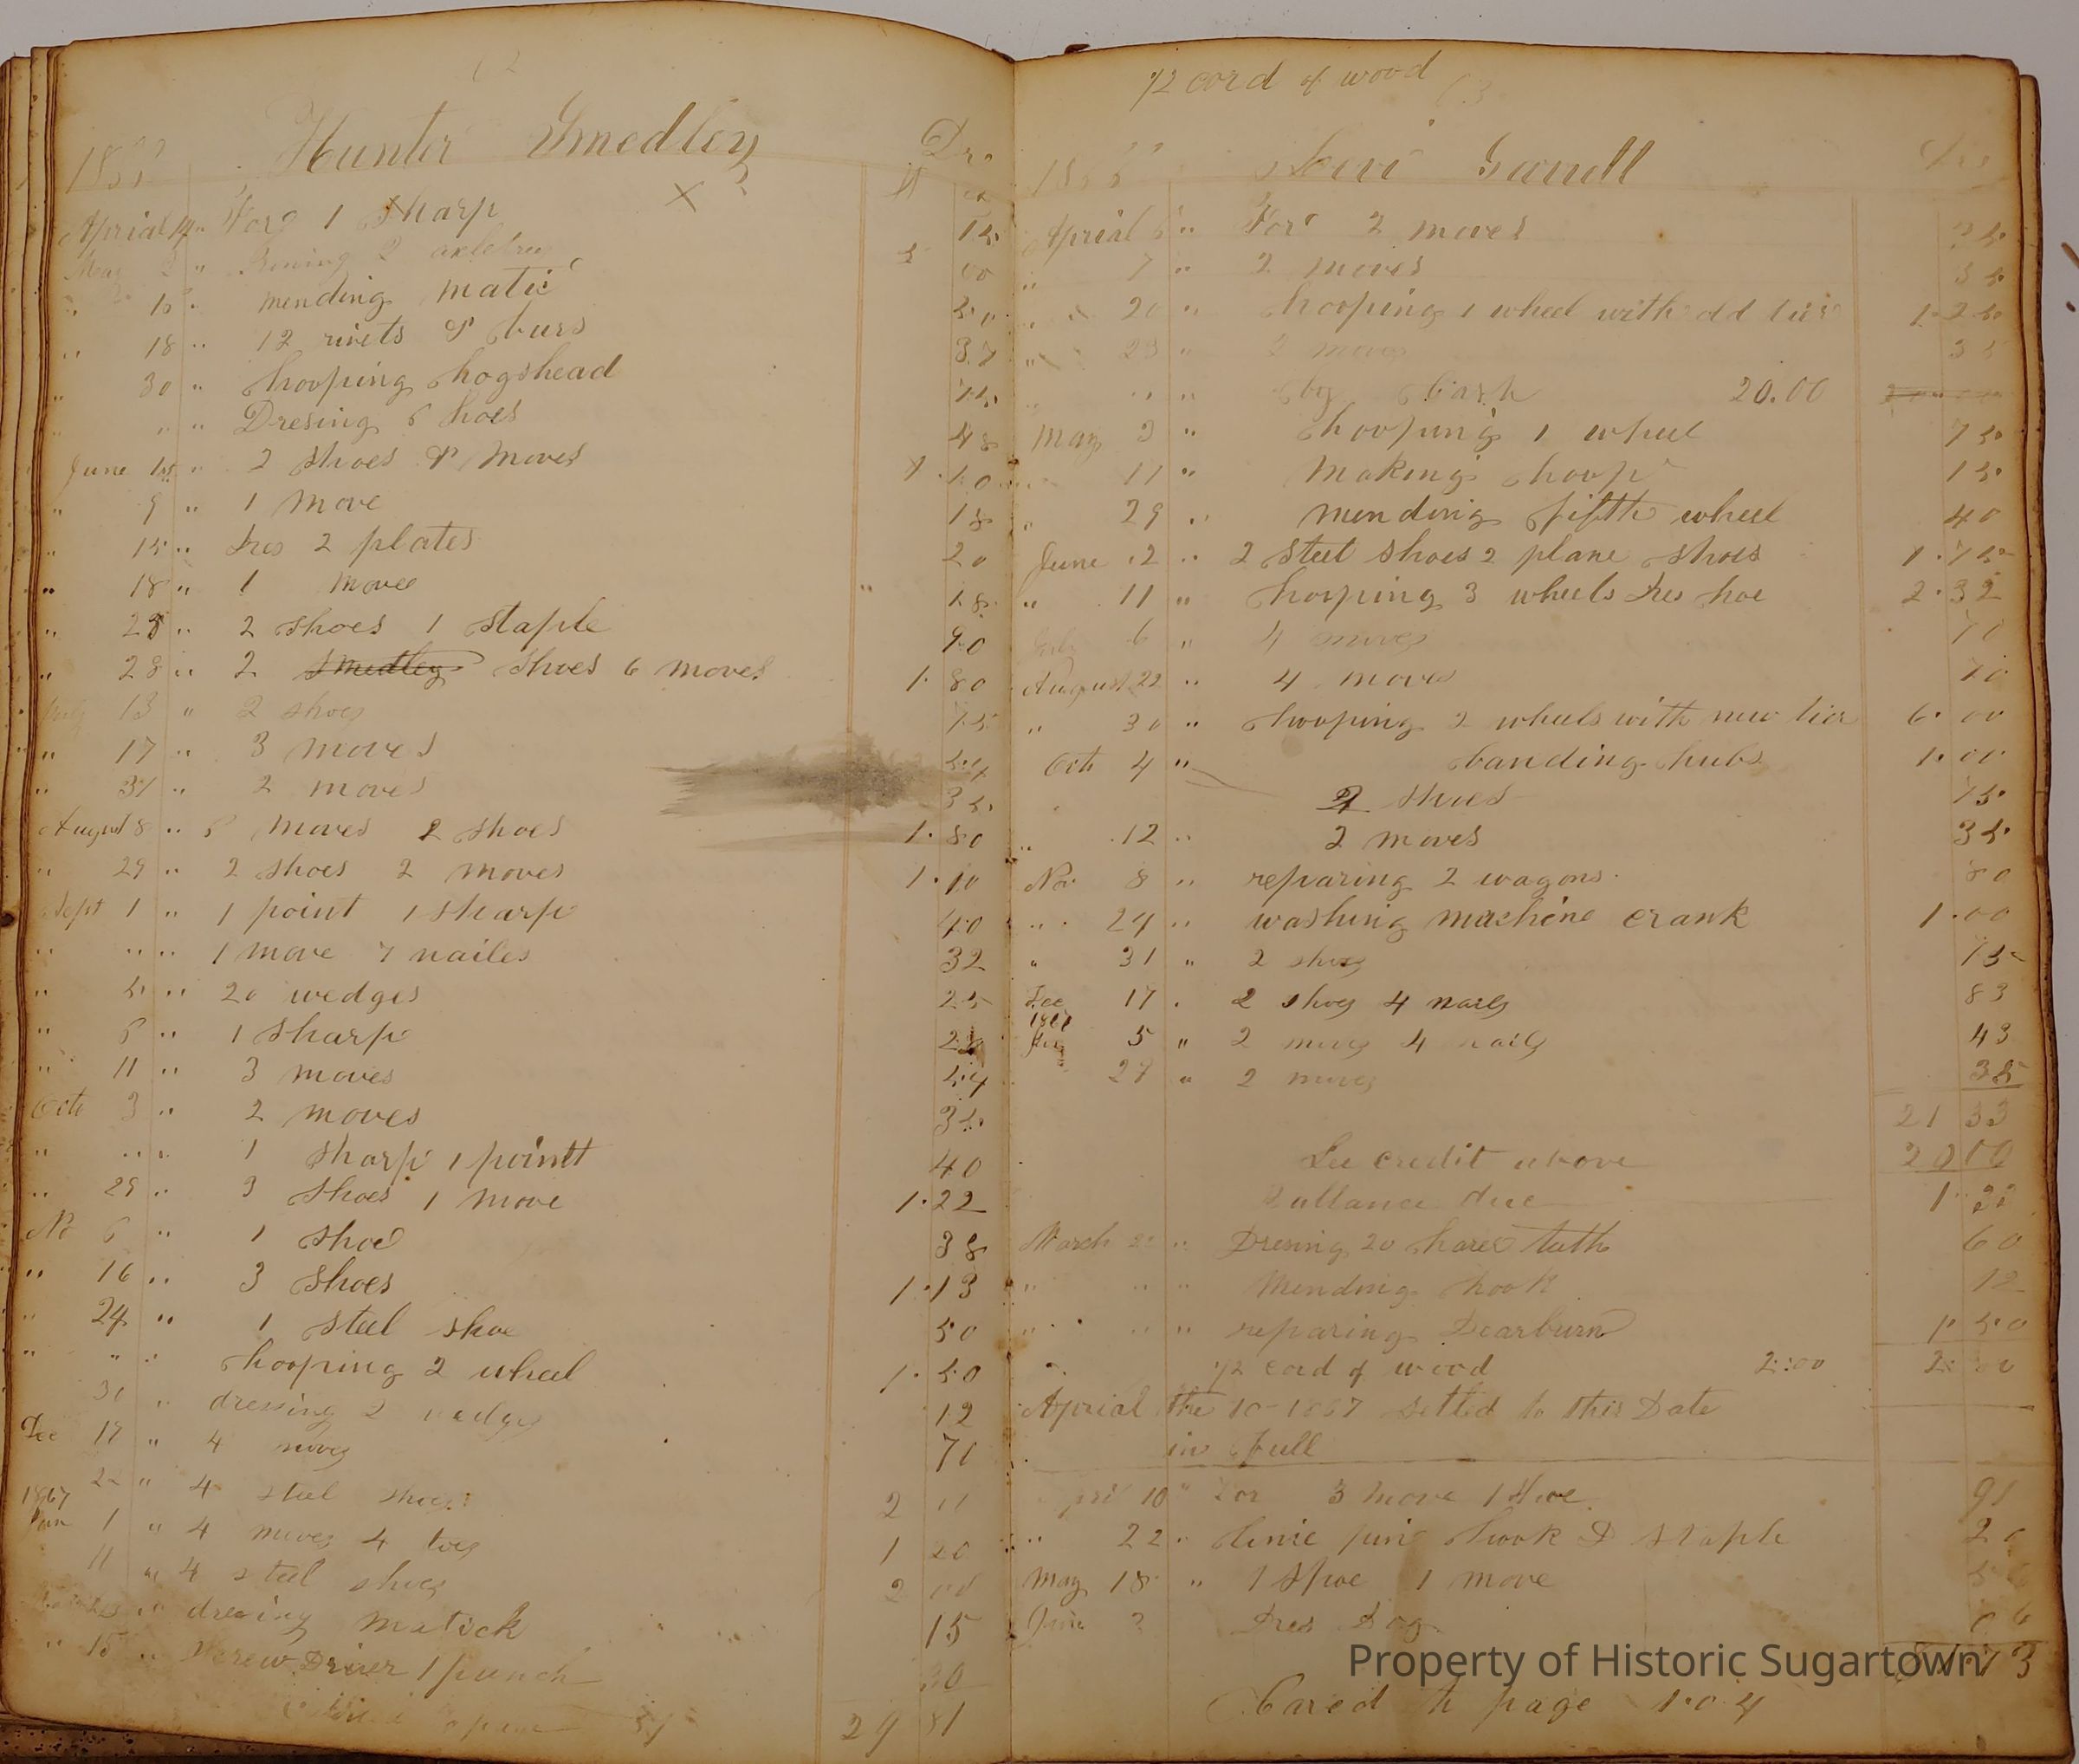 62
1866 Hunter Smedley Dr.
X
Aprial 14 " For 1 Sharp 15
May 2 " Ironing 2 axletree 5 00
" 15 " mending matic 50
" 18 " 12 rivits & burs 37
" 30 " hooping hogshead 75
" " " Dresing 6 shoes 48
June " 2 shoes & moves 1.10
" 9 " 1 move 18
" 15 " Dres 2 plates 20
" 18 " 1 move " 18
" 25 " 2 shoes 1 staple 90
" 28 " 2 Smedley shoes 6 moves 1.80
July 13 " 2 shoes 75
" 17 " 3 moves 54
" 31 " 2 moves 35
August 8 " moves 2 shoes 1.80
" 29 " 2 shoes 2 moves 1.10
Sept 1 " 1 point 1 sharp 40
" " " 1 move 7 nailes 32
" 5 " 20 wedges 25
" 6 " 1 sharp
" 11 " 3 moves 54
Octo 3 " 2 moves 35
" " " 1 sharp 1 pointt 40
" 29 " 3 shoes 1 move 1.22
No 6 " 1 shoe 38
" 16 " 3 shoes 1.13
" 24 " 1 steel shoe 50
" " " hooping 2 wheel 1.50
30 " dressing 2 wedges 12
Dec 17 " 4 moves 70
22 " 4 steel shoes 2 00
1867
Jan 1 " 4 moves 4 toes 1 20
11 " 4 steel shoes 2 00
" dresing matick 15
" 15 " Screw Driver 1 punch 30
29 81
1/2 cord of wood
63
1866 Levi Garrett Dr
Aprial 6 " For 2 moves 35
" 7 " 2 moves 35
" 20 " hooping 1 wheel with old tier 1.25
" 23 " 2 moves 35
" " " by Cash 20.00
May 3 " hooping 1 wheel 75
11 " making hoop 15
" 29 " mending fifth wheel 40
June 2 " 2 Steel shoes 2 plane shoes 1.75
" 11 " hooping 3 wheels Dres hoe 2.32
July 6 " 4 moves 70
August 22 " 4 moves 70
" 30 " hooping 2 wheels with new tier 6.00
Octo 4 " banding hubs 1.00
2 shoes 75
" 12 " 2 moves 35
No 8 " reparing 2 wagons 80
" 24 " washing machine crank 1.00
" 31 " 2 shoes 75
Dec 17 " 2 shoes 4 nails 83
1867
Jan 5 " 2 moves 4 nails 43
27 " 2 moves 35
21 33
See credit above 20 00
Ballance due 1.33
March " Dresing 20 harrow teeth 60
" " " Mending hook 12
" " " reparing Dearburn 1.50
" 1/2 cord of wood 2.00 2.00
Aprial the 10-1867 Settled to this Date
in full
10 " For 3 move 1 Shoe 91
" 22 " hook & staple 20
May 18 " 1 Shoe 1 move
June Dres Dog 06
Cared to page 104
Property of Historic Sugartown